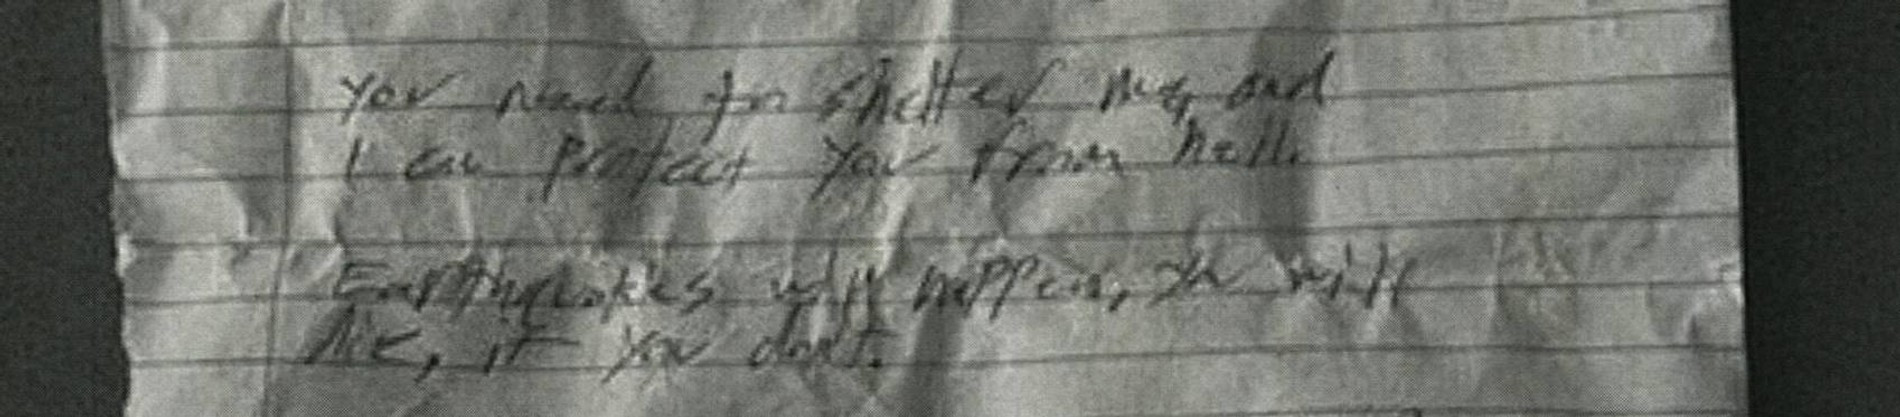 You need to shelter me, and
I can protect you from hell.
Earthquakes will happen, you will
die, if you dont.